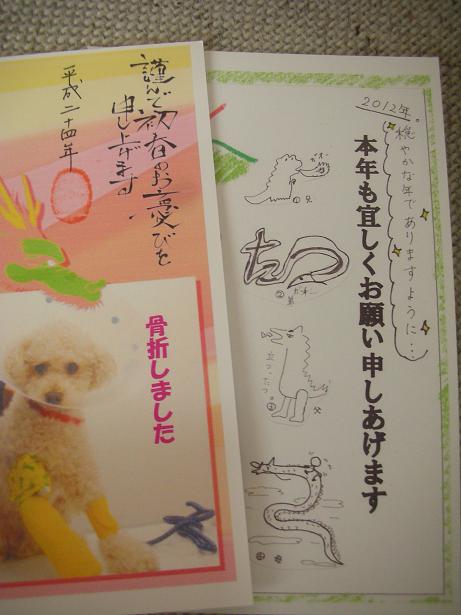 謹んで初春のお慶びを
申し上げます
平成二十四年
骨折しました
2012年。
穏やかな年でありますように…
本年も宜しくお願い申しあげます
①
父
たつ
②
立つ、たつ。
父